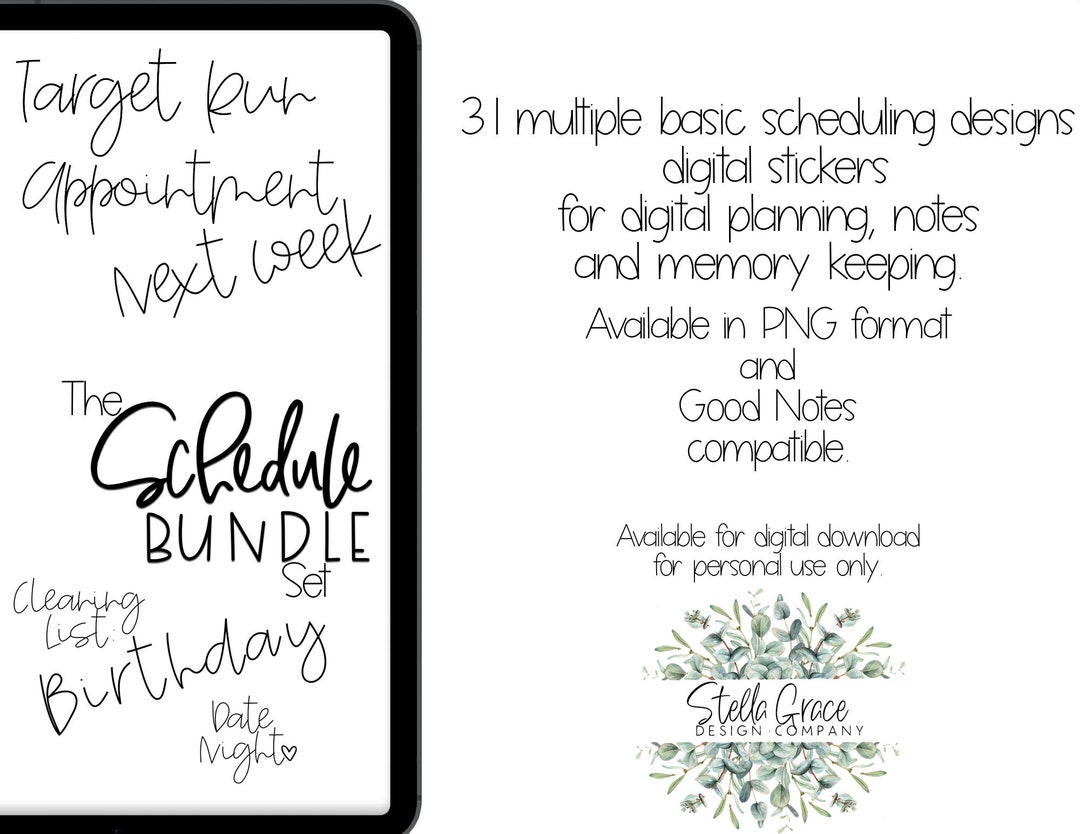 Target Run
Appointment
Next week
The
Schedule
BUNDLE
Set
Cleaning
List:
Birthday
Date
Night
31 multiple basic scheduling designs
digital stickers
for digital planning, notes
and memory keeping.
Available in PNG format
and
Good Notes
compatible.
Available for digital download
for personal use only.
Stella Grace
DESIGN · COMPANY